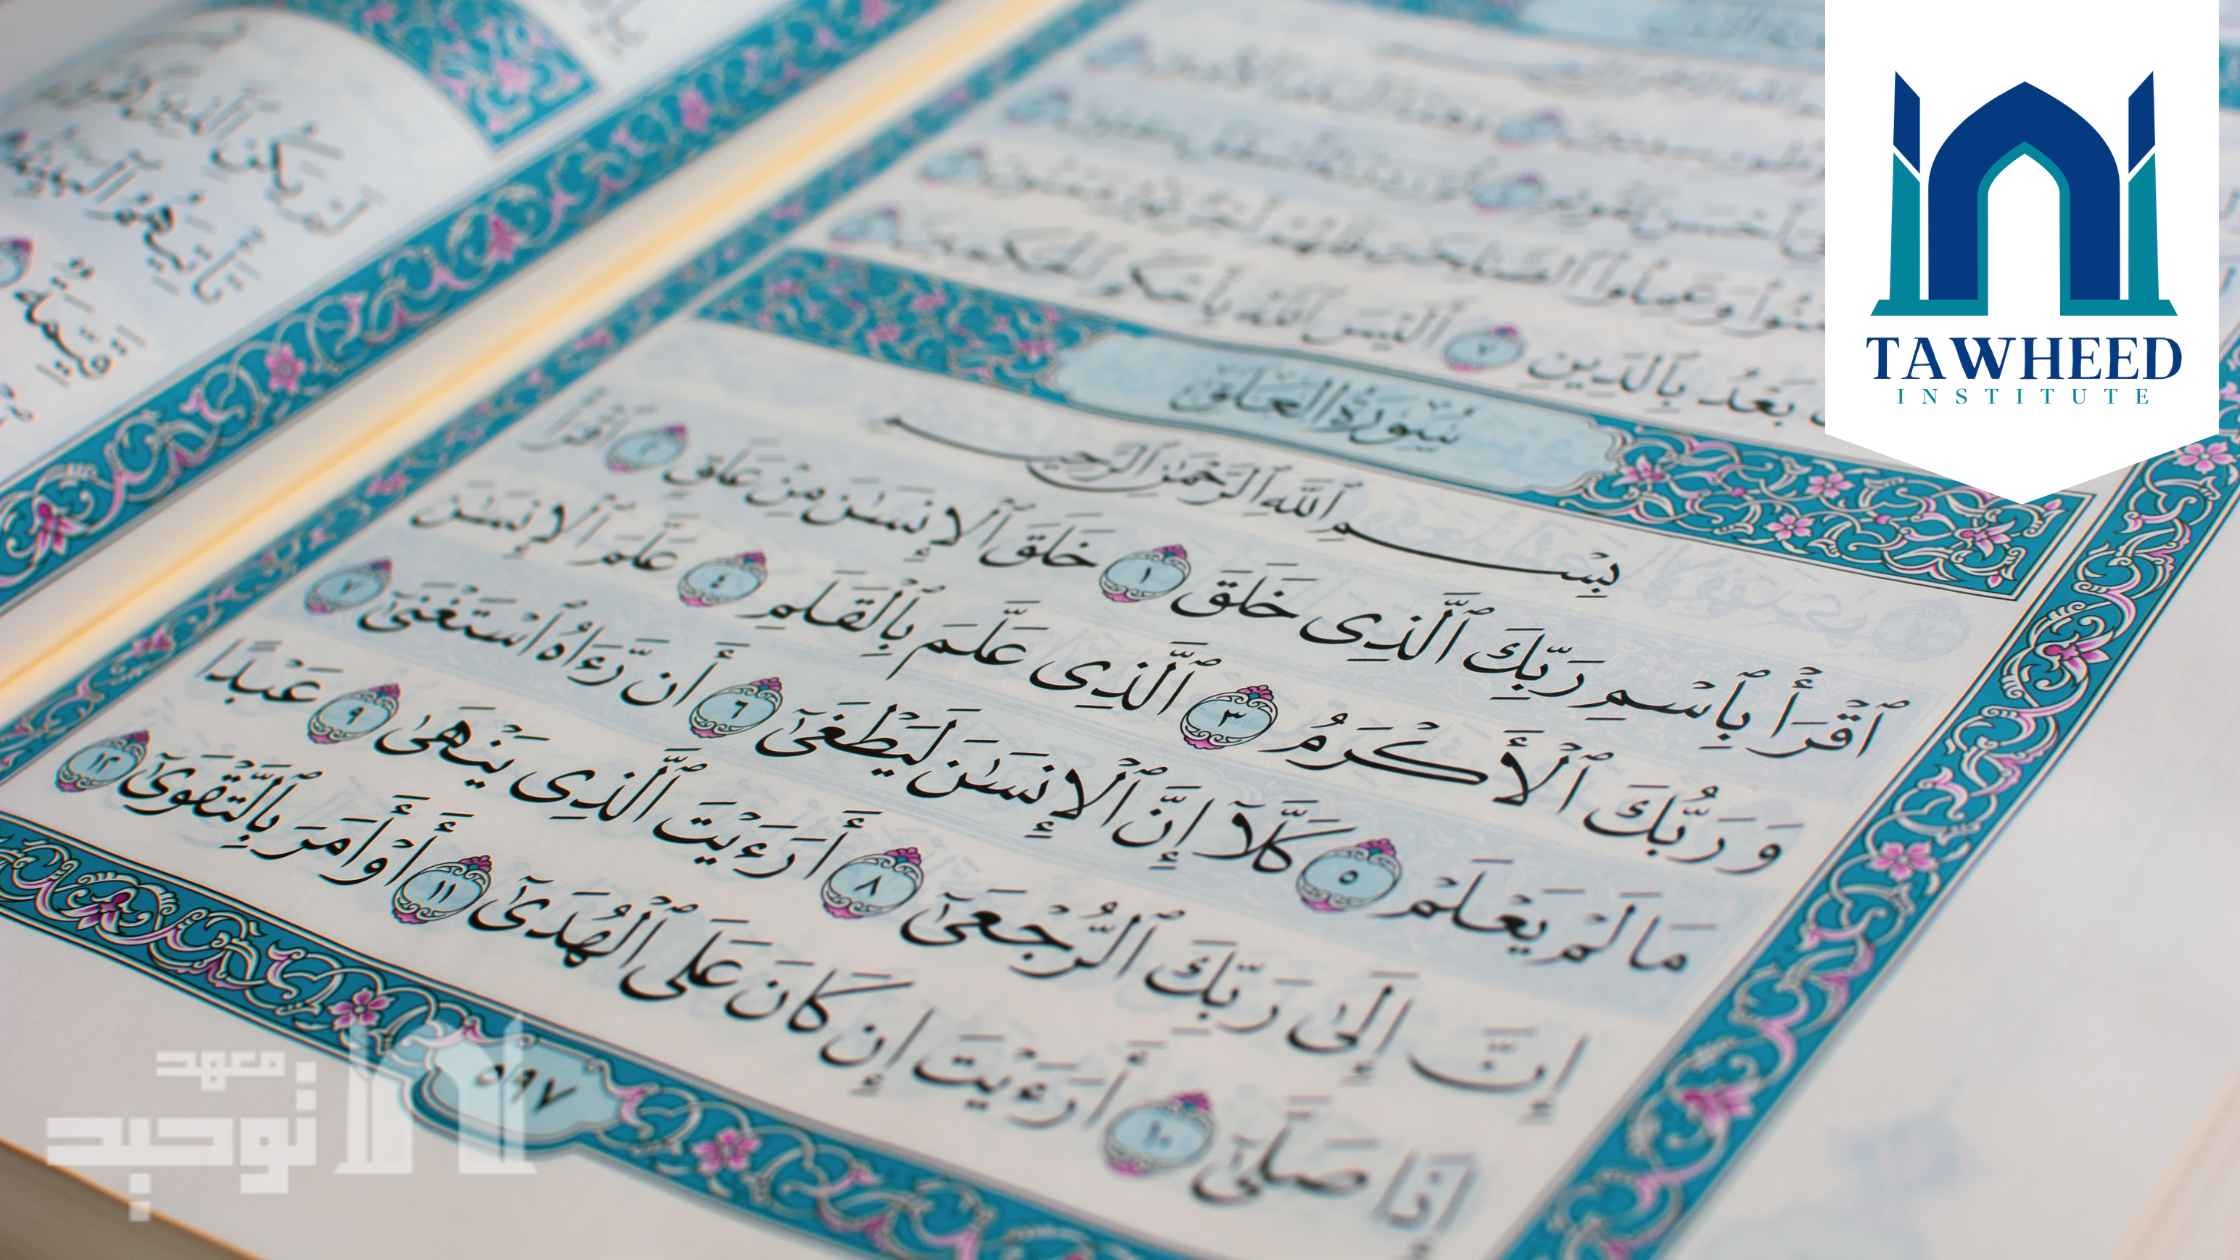 لَمْ يَكُنِ ٱلَّذِينَ
تَأْتِيَهُمُ ٱلْبَيِّنَةُ
قَيِّمَةٌ
بَعْدُ بِٱلدِّينِ ٧ أَلَيْسَ ٱللَّهُ بِأَحْكَمِ ٱلْحَٰكِمِينَ
سُورَةُ العَلَقِ
بِسْمِ ٱللَّهِ ٱلرَّحْمَٰنِ ٱلرَّحِيمِ
ٱقْرَأْ بِٱسْمِ رَبِّكَ ٱلَّذِى خَلَقَ ١ خَلَقَ ٱلْإِنسَٰنَ مِنْ عَلَقٍ ٢ ٱقْرَأْ
وَرَبُّكَ ٱلْأَكْرَمُ ٣ ٱلَّذِى عَلَّمَ بِٱلْقَلَمِ ٤ عَلَّمَ ٱلْإِنسَٰنَ
مَا لَمْ يَعْلَمْ ٥ كَلَّآ إِنَّ ٱلْإِنسَٰنَ لَيَطْغَىٰٓ ٦ أَن رَّءَاهُ ٱسْتَغْنَىٰٓ ٧
إِنَّ إِلَىٰ رَبِّكَ ٱلرُّجْعَىٰٓ ٨ أَرَءَيْتَ ٱلَّذِى يَنْهَىٰ ٩ عَبْدًا
إِذَا صَلَّىٰٓ ١٠ أَرَءَيْتَ إِن كَانَ عَلَى ٱلْهُدَىٰٓ ١١ أَوْ أَمَرَ بِٱلتَّقْوَىٰٓ ١٢
٥٩٧
TAWHEED
INSTITUTE
معهد
توحيد